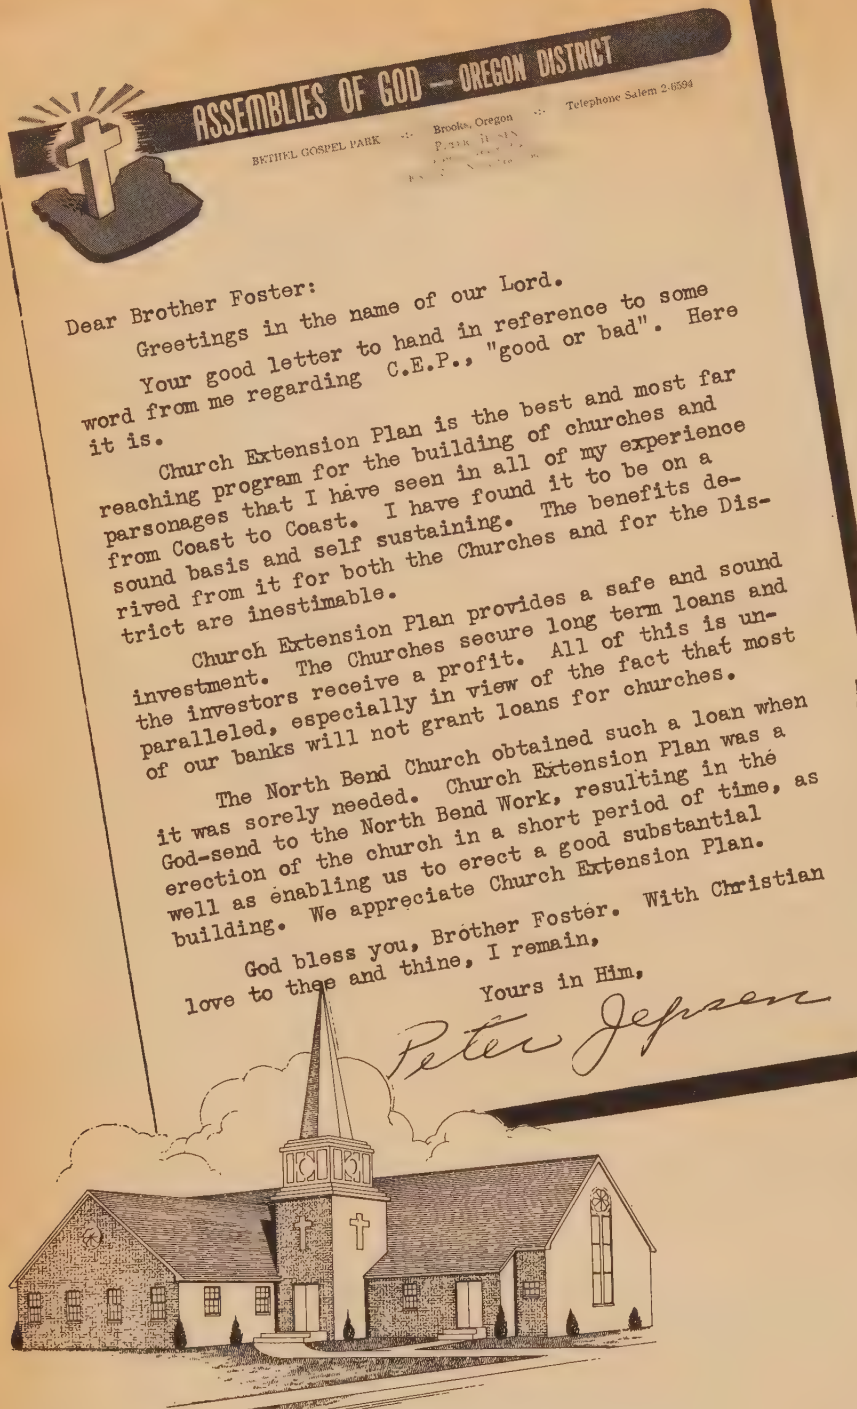 ASSEMBLIES OF GOD — OREGON DISTRICT
BETHEL GOSPEL PARK -:- Brooks, Oregon -:- Telephone Salem 2-6594
Dear Brother Foster:
Greetings in the name of our Lord.
Your good letter to hand in reference to some
word from me regarding C.E.P., "good or bad". Here
it is.
Church Extension Plan is the best and most far
reaching program for the building of churches and
parsonages that I have seen in all of my experience
from Coast to Coast. I have found it to be on a
sound basis and self sustaining. The benefits de-
rived from it for both the Churches and for the Dis-
trict are inestimable.
Church Extension Plan provides a safe and sound
investment. The Churches secure long term loans and
the investors receive a profit. All of this is un-
paralleled, especially in view of the fact that most
of our banks will not grant loans for churches.
The North Bend Church obtained such a loan when
it was sorely needed. Church Extension Plan was a
God-send to the North Bend Work, resulting in the
erection of the church in a short period of time, as
well as enabling us to erect a good substantial
building. We appreciate Church Extension Plan.
God bless you, Brother Foster. With Christian
love to thee and thine, I remain,
Yours in Him,
Peter Jepsen